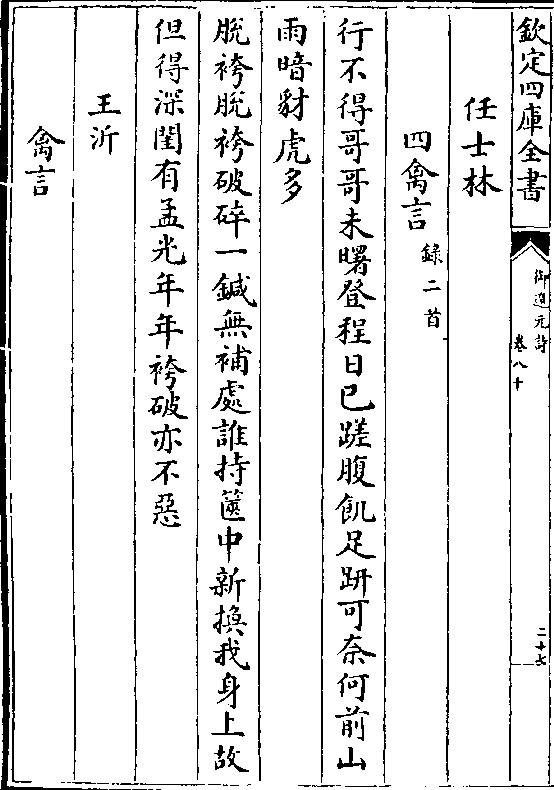 欽定四庫全書
御選元詩
卷八十
二十七
任士林
四禽言錄二首
行不得哥哥未曙登程日已蹉腹飢足趼可奈何前山
雨暗豺虎多
脫袴脫袴破碎一鍼無補處誰持篋中新換我身上故
但得深閨有孟光年年袴破亦不惡
王沂
禽言